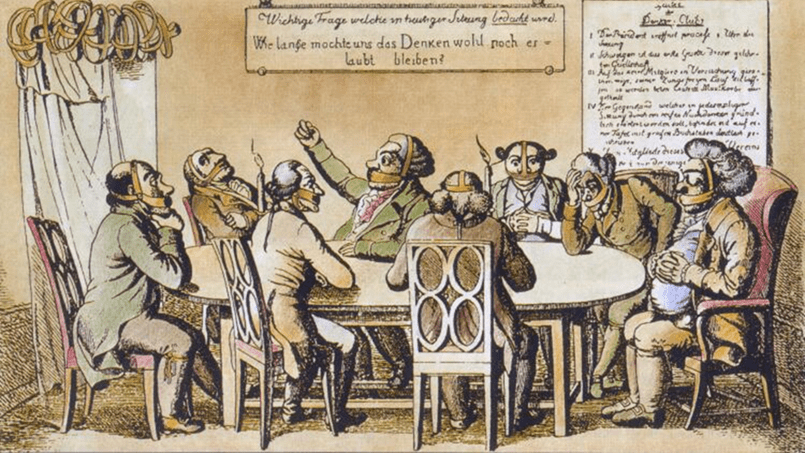 Wichtige Frage welche in heutiger Sitzung bedacht wird.
Wie lange möchte uns das Denken wohl noch er=
laubt bleiben?
der
Denker-Club
I Der Präsident eröffnet präcise 8 Uhr die
Sitzung
II Schweigen ist das erste Gesetz dieser gelehr=
ten Gesellschaft
III Auf das kein Mitglied in Versuchung gera=
then möge, seiner Zunge freyen Lauf zu las=
sen so werden beim Eintritt Maulkörbe aus=
getheilt
IV Der Gegenstand, welcher in jedesmaliger
Sitzung durch ein reifes Nachdenken gründ=
lich erörtert werden soll, befindet sich auf ei=
ner Tafel mit grossen Buchstaben deutlich ge=
schrieben
Mitglieder dieses Vereins